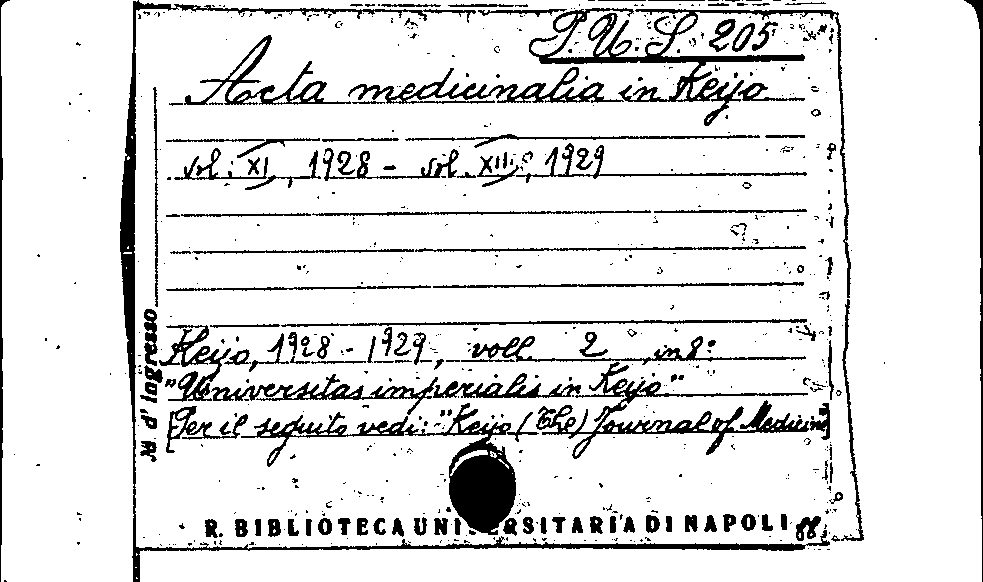 P.U.S. 205
Acta medicinalia in Keijo
vol. XI, 1928 - vol. XII, 1929
Keijo, 1928 - 1929, voll. 2, in 8°
"Universitas imperialis in Keijo"
[Per il seguito vedi: "Keijo (The) Journal of Medicine"]
N. d'Ingresso
R. BIBLIOTECA UNIVERSITARIA DI NAPOLI